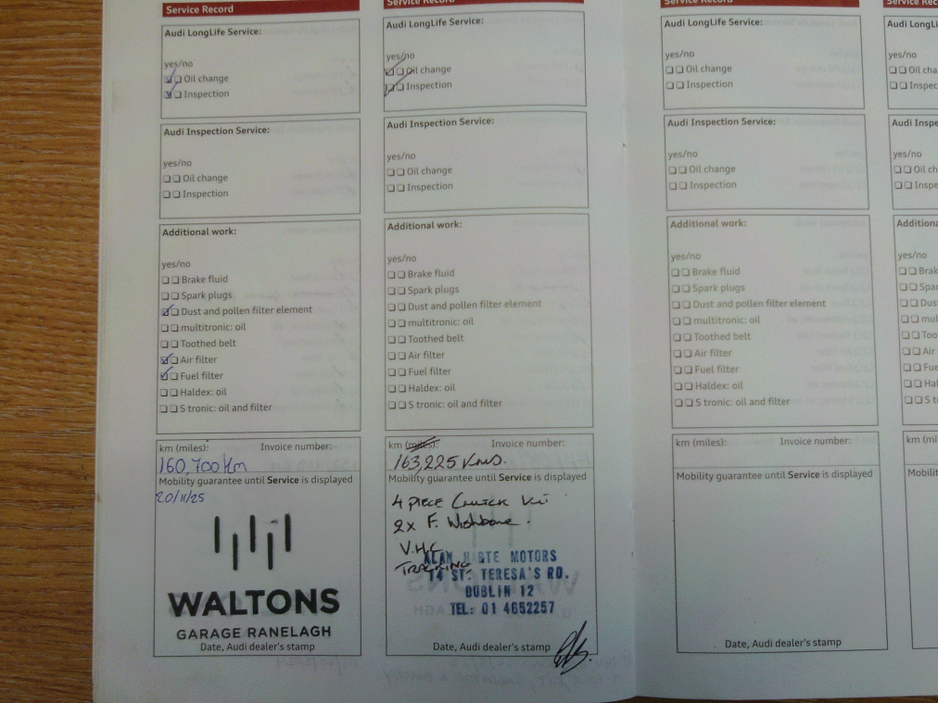 Service Record
Audi LongLife Service:
yes/no
Oil change
Inspection
Audi Inspection Service:
yes/no
Oil change
Inspection
Additional work:
yes/no
Brake fluid
Spark plugs
Dust and pollen filter element
multitronic: oil
Toothed belt
Air filter
Fuel filter
Haldex: oil
S tronic: oil and filter
km (miles): Invoice number:
160,700 Km
Mobility guarantee until Service is displayed
20/11/25
WALTONS
GARAGE RANELAGH
Date, Audi dealer's stamp
Service Record
Audi LongLife Service:
yes/no
Oil change
Inspection
Audi Inspection Service:
yes/no
Oil change
Inspection
Additional work:
yes/no
Brake fluid
Spark plugs
Dust and pollen filter element
multitronic: oil
Toothed belt
Air filter
Fuel filter
Haldex: oil
S tronic: oil and filter
km (miles): Invoice number:
163,225 Kms.
Mobility guarantee until Service is displayed
4 PIECE Clutch Kit
2x F. Wishbone.
V.H.C
TRACKING
ALAN HARTE MOTORS
14 ST. TERESA'S RD.
DUBLIN 12
TEL: 01 4652257
Date, Audi dealer's stamp
Service Record
Audi LongLife Service:
yes/no
Oil change
Inspection
Audi Inspection Service:
yes/no
Oil change
Inspection
Additional work:
yes/no
Brake fluid
Spark plugs
Dust and pollen filter element
multitronic: oil
Toothed belt
Air filter
Fuel filter
Haldex: oil
S tronic: oil and filter
km (miles): Invoice number:
Mobility guarantee until Service is displayed
Date, Audi dealer's stamp
Audi Lon
yes/no
Oil cha
Inspe
Audi Inspe
yes/no
Oil c
Inspe
Additional
yes/no
Bra
Spar
Dus
mul
Too
Air
Fue
Hal
S tr
km (mi
Mobility